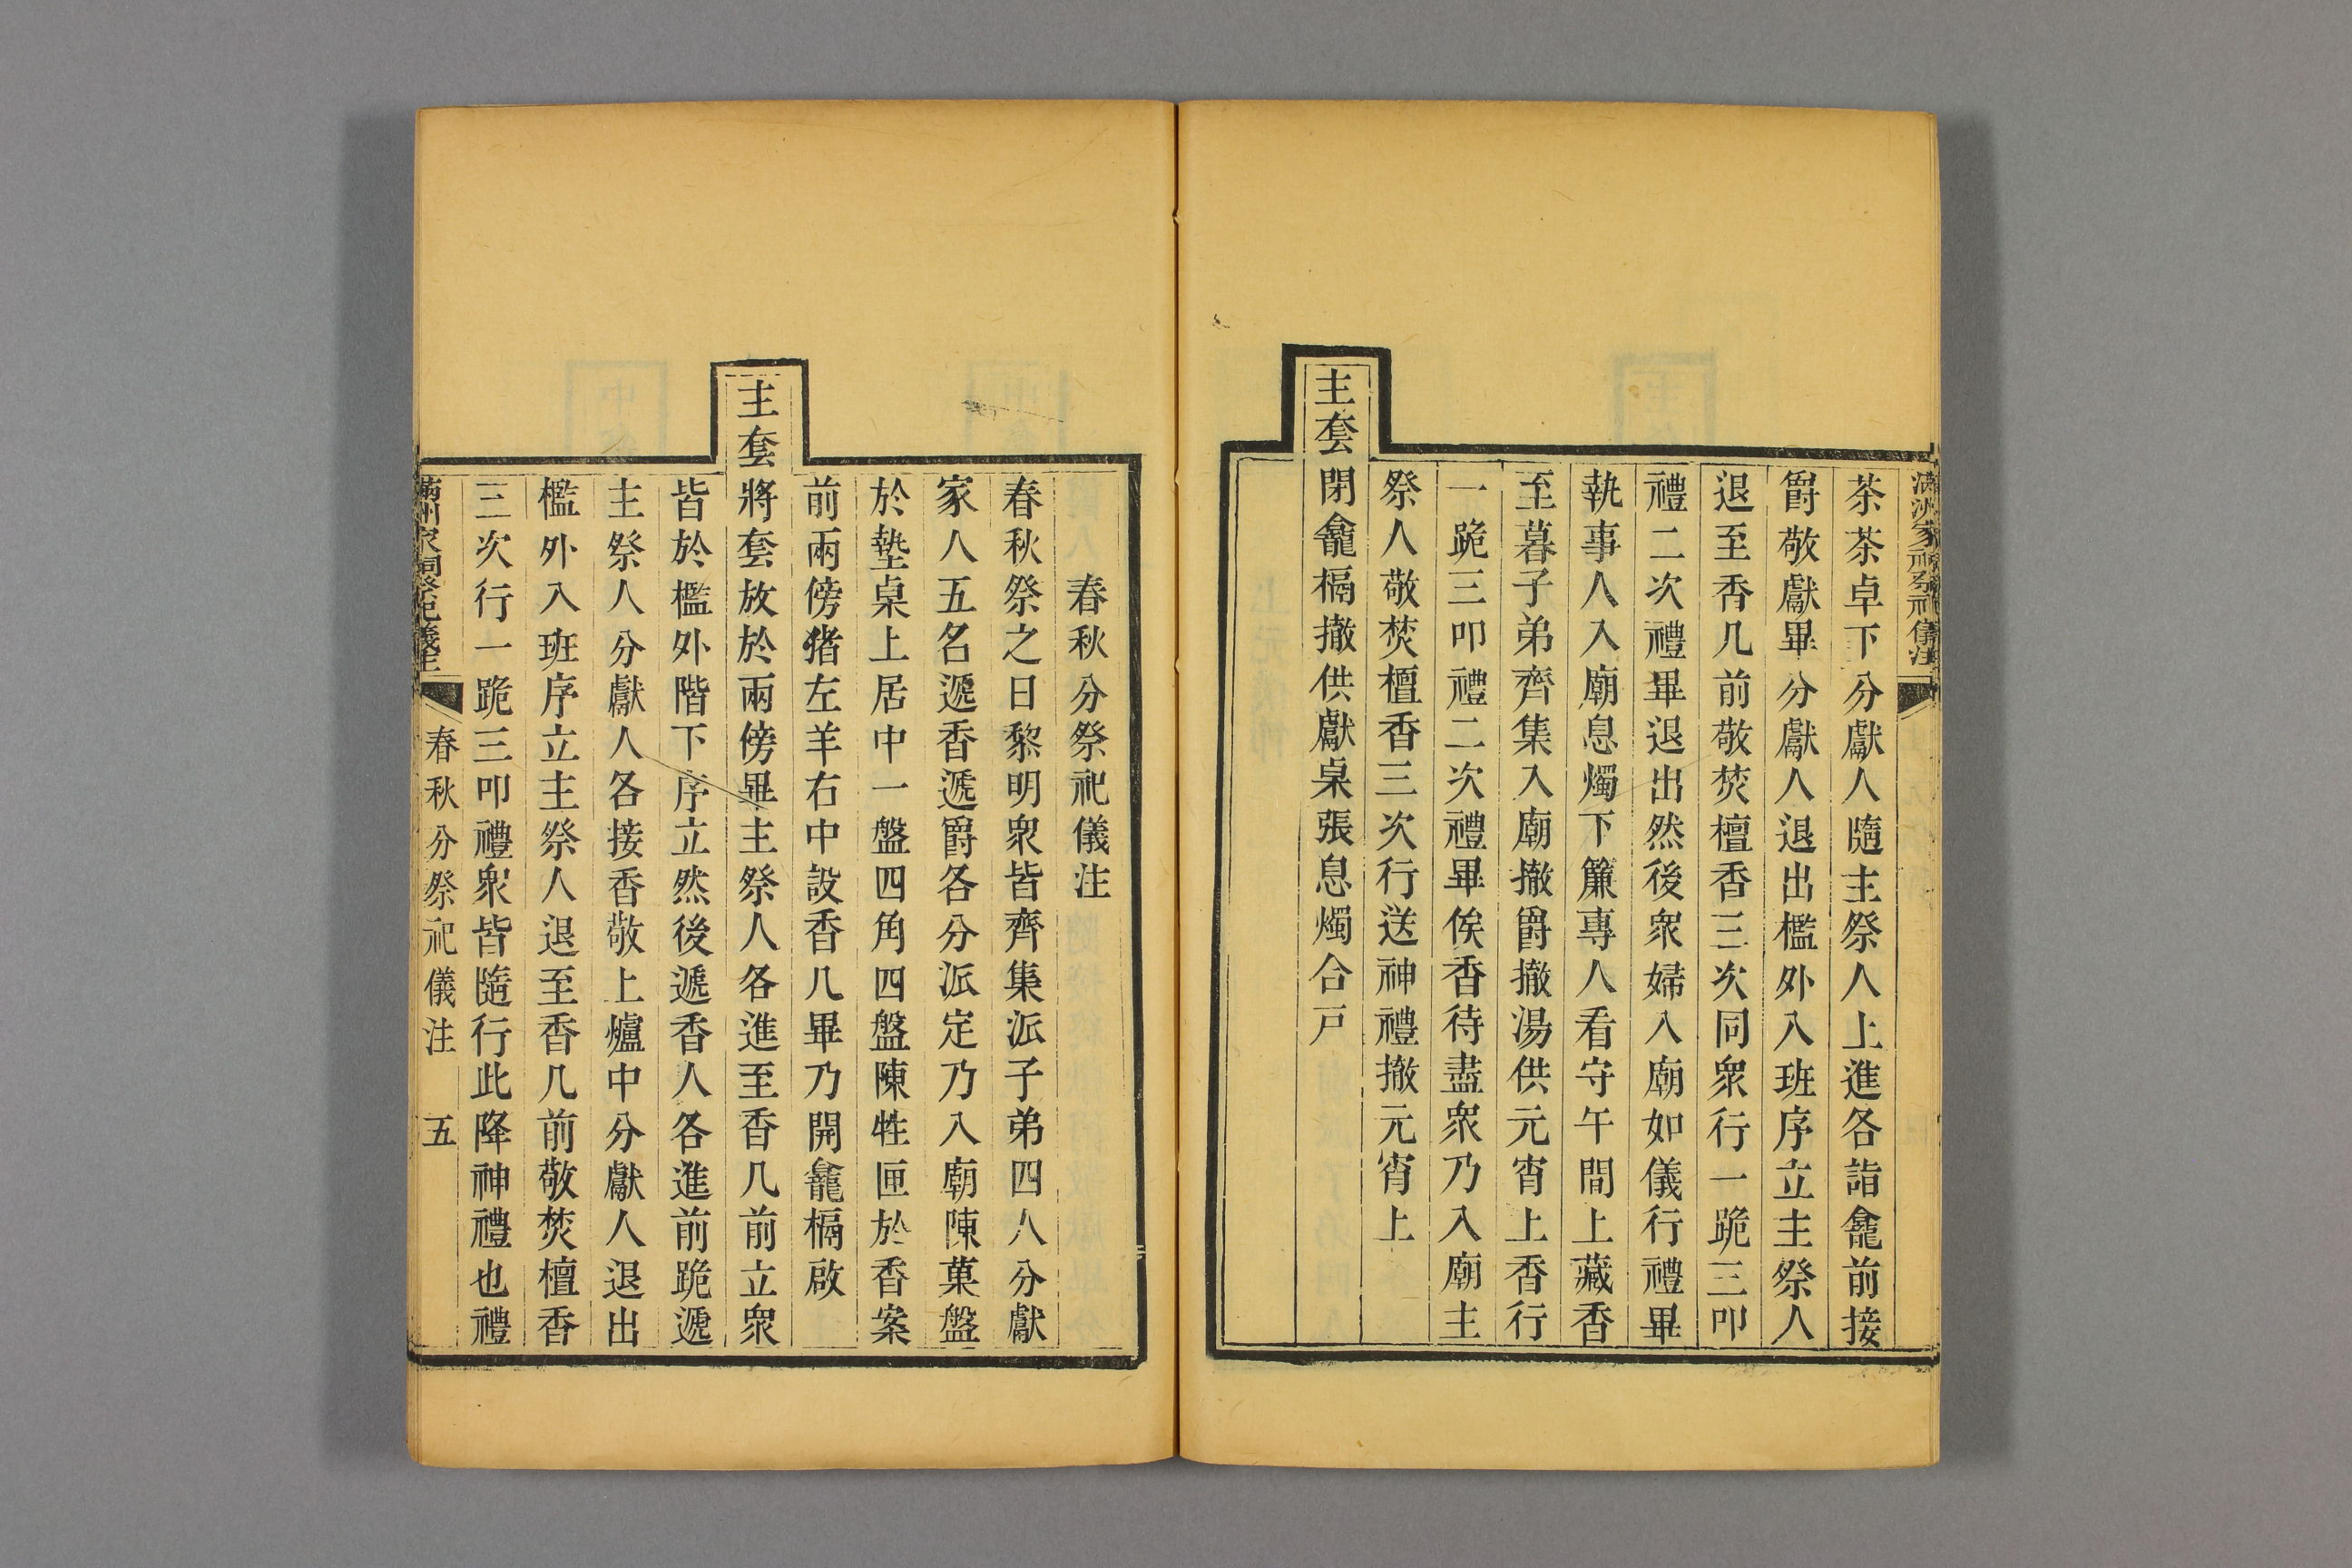 茶茶卓下分獻人隨主祭人上進各詣龕前接
爵敬獻畢分獻人退出檻外入班序立主祭人
退至香几前敬焚檀香三次同衆行一跪三叩
禮二次禮畢退出然後衆婦入廟如儀行禮畢
執事人入廟息燭下簾專人看守午間上藏香
至暮子弟齊集入廟撤爵撤湯供元宵上香行
一跪三叩禮二次禮畢俟香待盡衆乃入廟主
祭人敬焚檀香三次行送神禮撤元宵上
主套閉龕槅撤供獻桌張息燭合戸
春秋分祭祀儀注
春秋祭之日黎明衆皆齊集派子弟四人分獻
家人五名遞香遞爵各分派定乃入廟陳菓盤
於墊桌上居中一盤四角四盤陳牲匣於香案
前兩傍猪左羊右中設香几畢乃開龕槅啟
主套將套放於兩傍畢主祭人各進至香几前立衆
皆於檻外階下序立然後遞香人各進前跪遞
主祭人分獻人各接香敬上爐中分獻人退出
檻外入班序立主祭人退至香几前敬焚檀香
三次行一跪三叩禮衆皆隨行此降神禮也禮
春秋分祭祀儀注 五